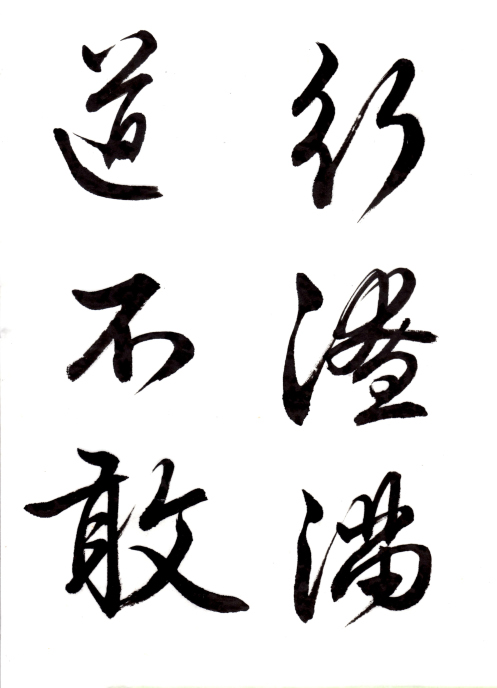 行滿
道不敢